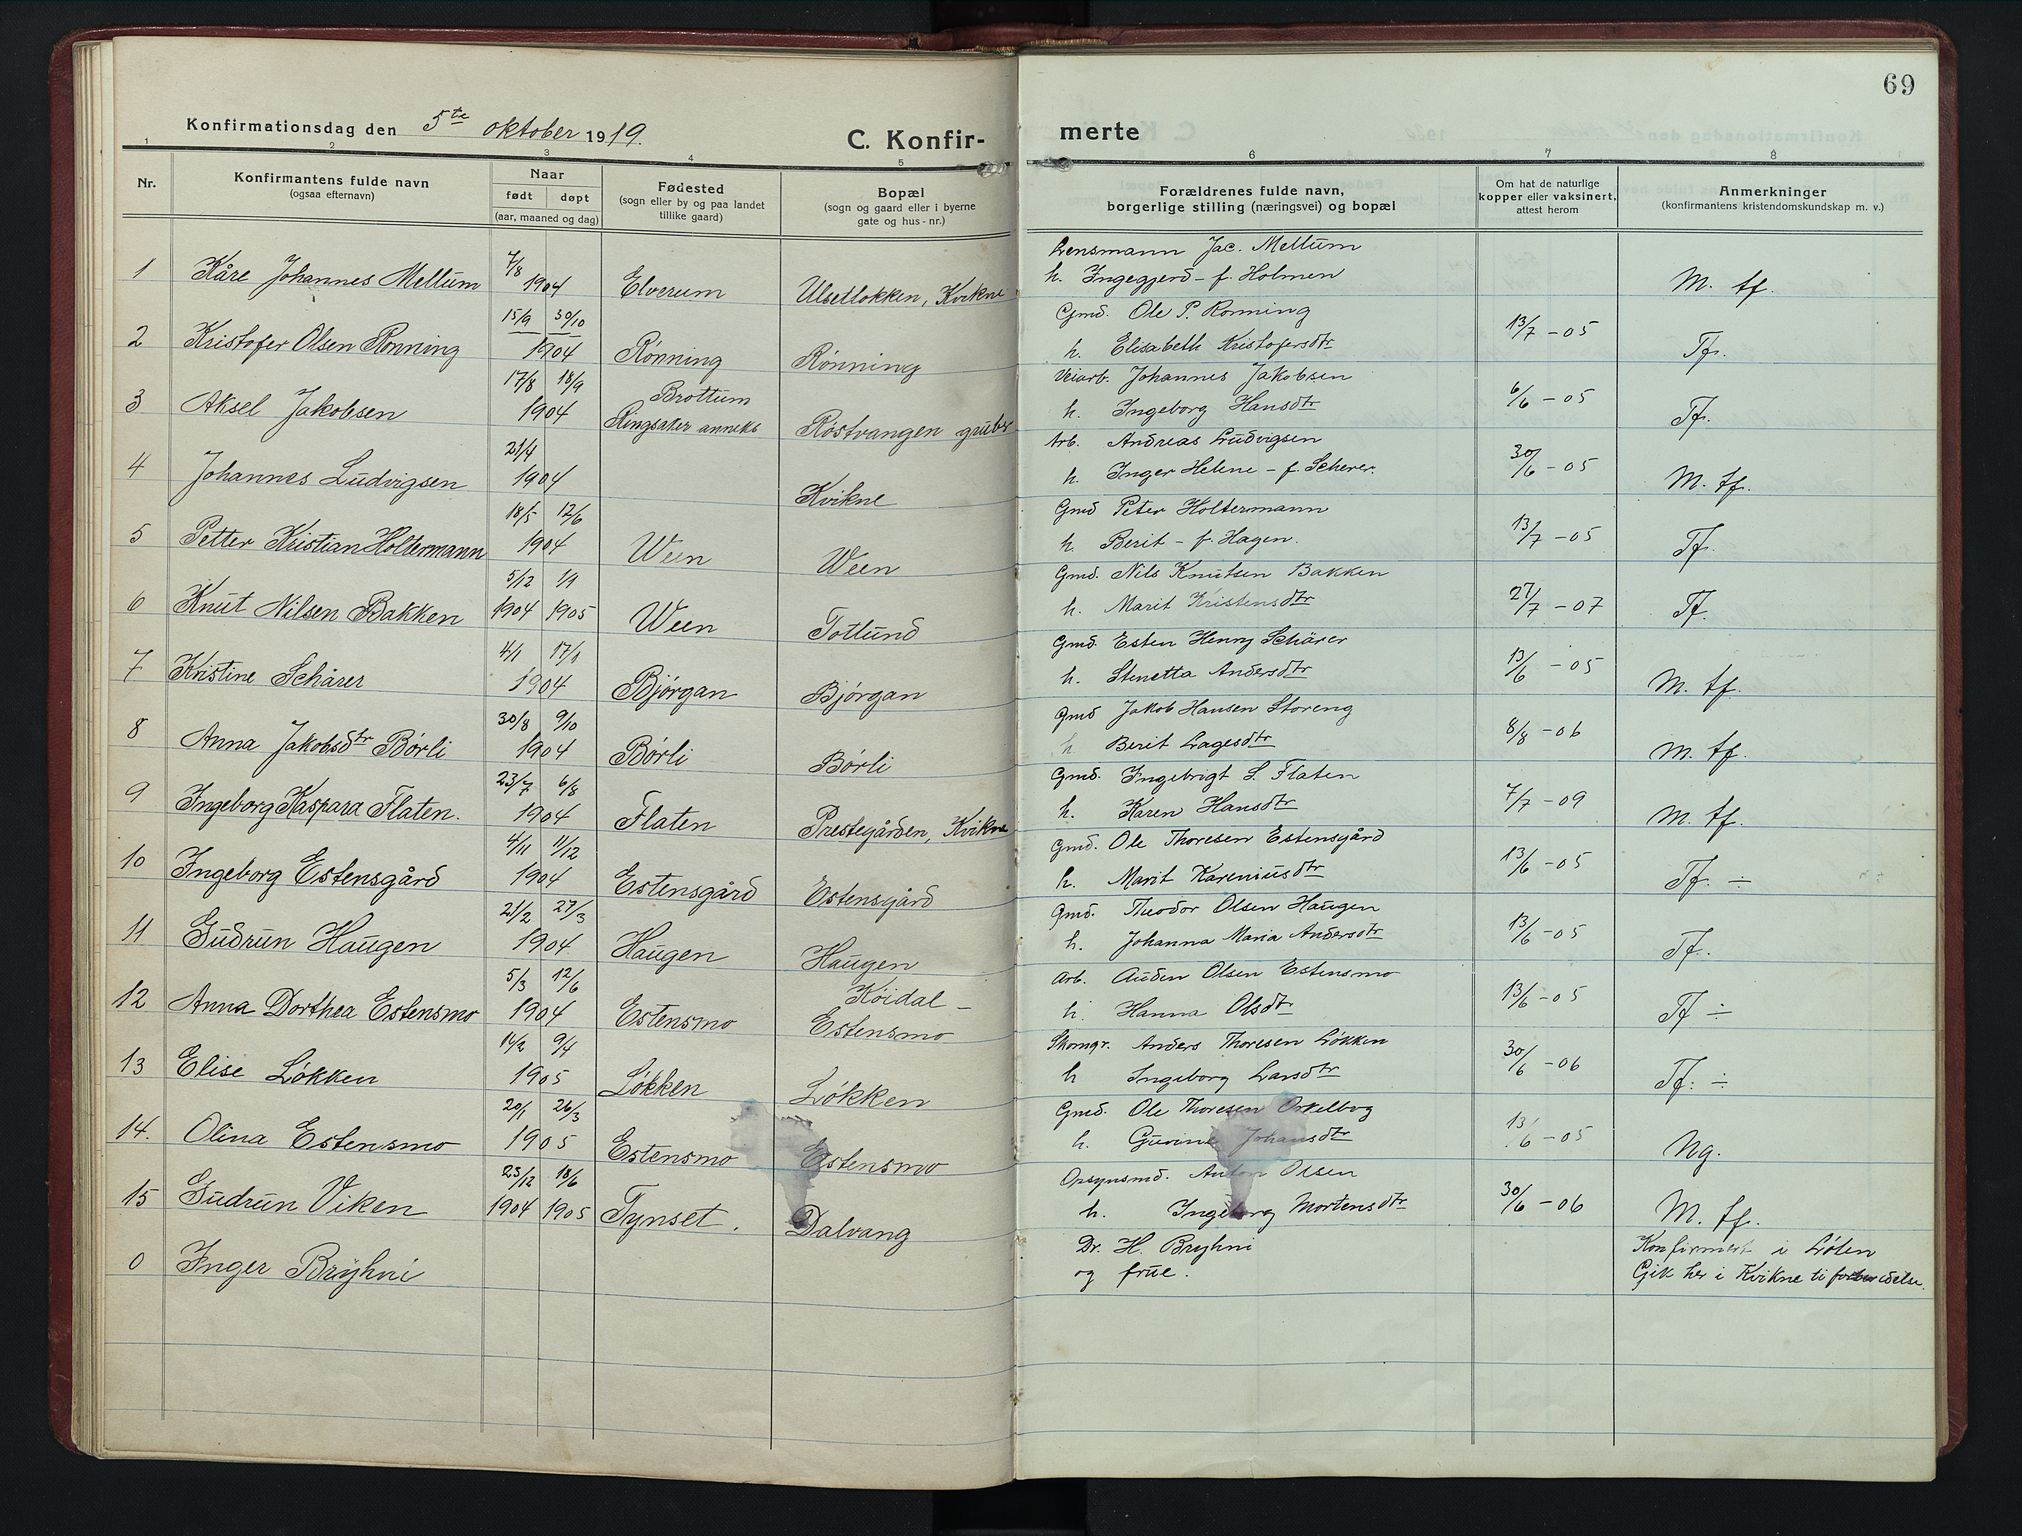 69
Konfirmationsdag den 5te oktober 1919.
C. Konfirmerte
1 2 3 4 5 6 7 8
Nr.
Konfirmantens fulde navn
(ogsaa efternavn)
Naar
født døpt
(aar, maaned og dag)
Fødested
(sogn eller by og paa landet
tillike gaard)
Bopæl
(sogn og gaard eller i byerne
gate og hus-nr.)
Forældrenes fulde navn,
borgerlige stilling (næringsvei) og bopæl
Om hat de naturlige
kopper eller vaksinert,
attest herom
Anmerkninger
(konfirmantens kristendomskundskap m. v.)
1 Kåre Johannes Mellum 7/8 1904 Elverum Ulsetløkken, Kvikne
Lensmann Jac. Mellum
h. Ingegjerd - f. Holmen M. tf.
2 Kristofer Olsen Rønning 15/9 30/10 1904 Rønning Rønning
Gmd. Ole P. Rønning
h. Elisabeth Kristofersdtr 13/7 - 05 Tf.
3 Aksel Jakobsen 17/8 18/9 1904 Brøttum
Ringsaker anneks Røstvangen gruber
Veiarb. Johannes Jakobsen
h. Ingeborg Hansdtr 6/6 - 05 Tf.
4 Johannes Ludvigsen 21/4 1904 Kvikne
Arb. Andreas Ludvigsen
h. Inger Helene - f. Scherer. 30/6 - 05 M. tf.
5 Petter Kristian Holtermann 18/5 12/6 1904 Ween Ween
Gmd Peter Holtermann
h. Berit - f. Hagen. 13/7 - 05 Tf.
6 Knut Nilsen Bakken 5/12 1/9 1904 1905 Ween Totlund
Gmd. Nils Knutsen Bakken
h. Marit Kristensdtr 27/7 - 07 Tf.
7 Kristine Schårer 4/1 17/1 1904 Bjørgan Bjørgan
Gmd. Esten Henry Schårer
h. Stenetta Andersdtr 13/6 - 05 M. tf.
8 Anna Jakobsdtr Børli 30/8 9/10 1904 Børli Børli
Gmd Jakob Hansen Storeng
h Berit Lagesdtr 8/8 - 06 M. tf.
9 Ingeborg Kaspara Flaten. 23/7 6/8 1904 Flaten Prestegården, Kvikne
Gmd. Ingebrigt S. Flaten
h. Karen Hansdtr 7/7 - 09 M. tf.
10 Ingeborg Estensgård 4/11 11/12 1904 Estensgård Estensgård
Gmd. Ole Thoresen Estensgård
h. Marit Kareniusdtr 13/6 - 05 Tf. ÷
11 Gudrun Haugen 21/2 27/3 1904 Haugen Haugen
Gmd. Theodor Olsen Haugen
h. Johanna Maria Andersdtr 13/6 - 05 Tf.
12 Anna Dorthea Estensmo 5/3 12/6 1904 Estensmo Köidal -
Estensmo
Arb. Auden Olsen Estensmo
h. Hanna Olsdtr 13/6 - 05 Tf ÷
13 Elise Løkken 14/2 9/4 1905 Løkken Løkken
Skomgr. Anders Thoresen Løkken
h Ingeborg Larsdtr 30/6 - 06 Tf. ÷
14. Olina Estensmo 20/1 26/3 1905 Estensmo Estensmo
Gmd. Ole Thoresen Orkelbog
h. Johansdtr 13/6 - 05 Ng.
15 Gudrun Viken 25/12 18/6 1904 1905 Tynset. Dalvang
Opsynsmd. Anton Olsen
h. Ingeborg Mortensdtr 30/6 - 06 M. tf.
0 Inger Bryhni
Dr. H. Bryhni
og frue.
Konfirmert i Løten
Gik her i Kvikne ti forberedelse.